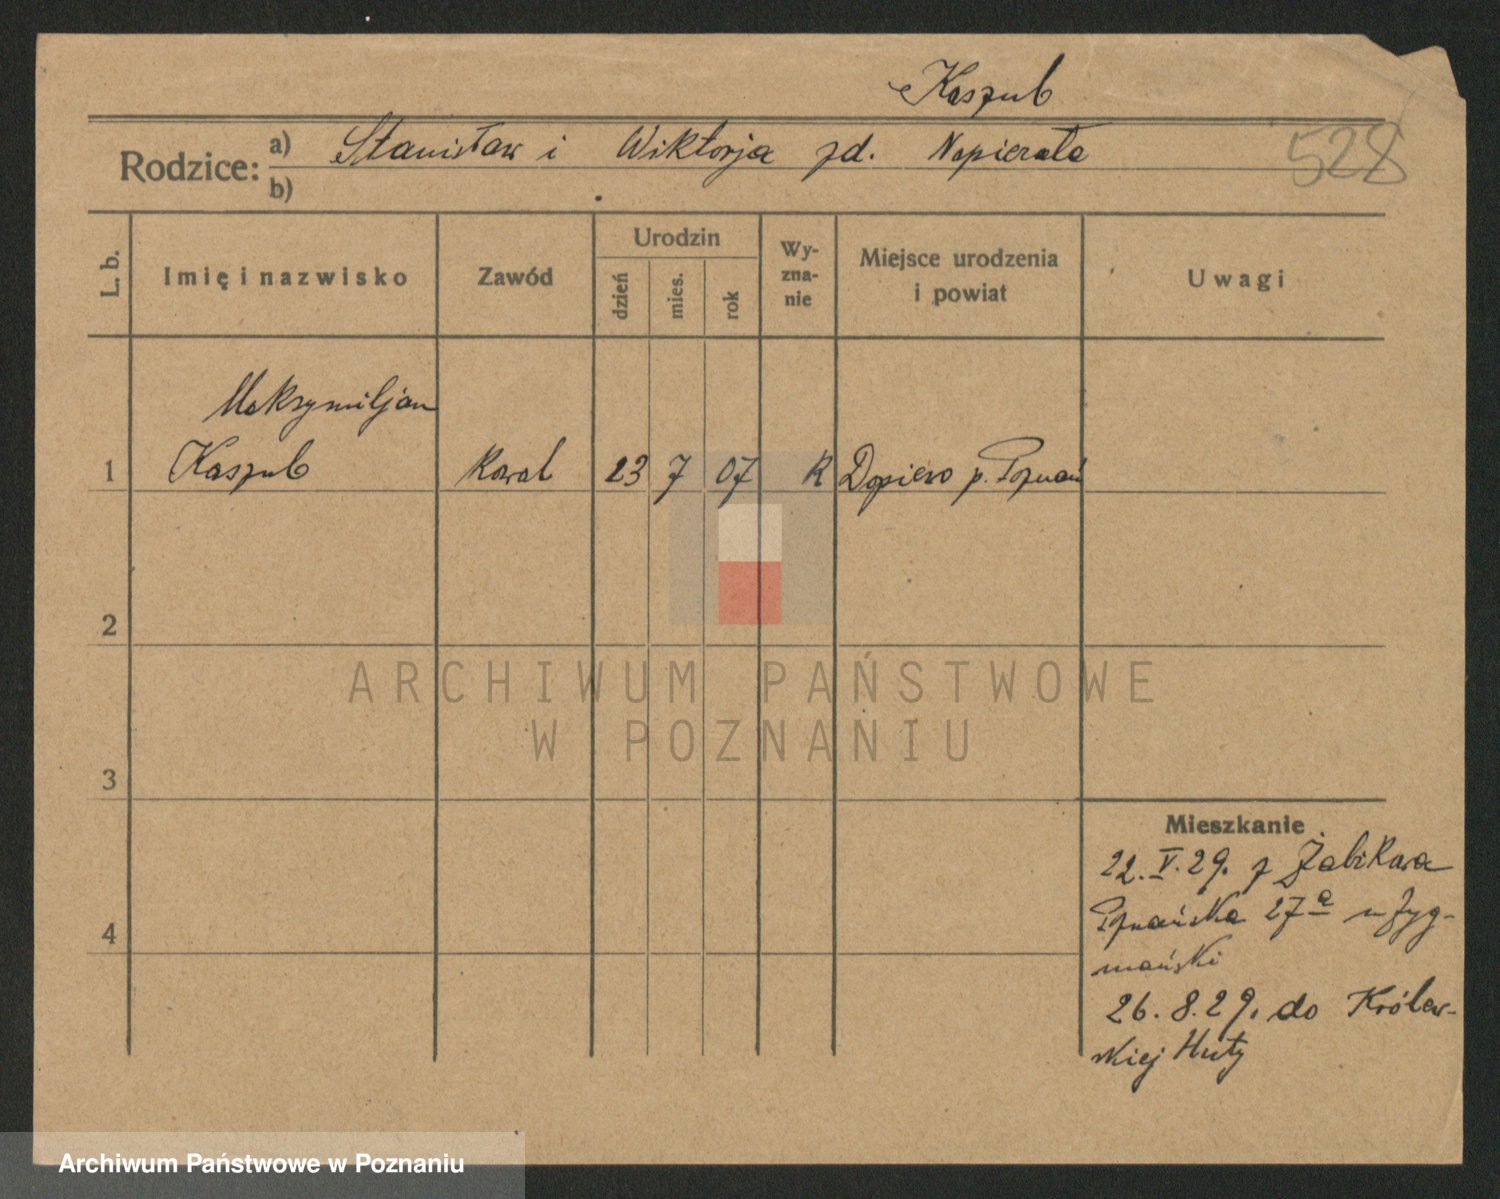 Kaszub
Rodzice: a) Stanisław i Wiktorja zd. Napierała
b)
528
L. b.
Imię i nazwisko
Zawód
Urodzin
dzień
mies.
rok
Wy-
zna-
nie
Miejsce urodzenia
i powiat
Uwagi
Maksymiljan
1 Kaszub Kowal 23 7 07 R Dopiewo p. Poznań
2
3
4
ARCHIWUM PAŃSTWOWE
W POZNANIU
Mieszkanie
22.V.29. z Żabikowa
Poznańska 27a u Zyg-
mański
26.8.29. do Królew-
skiej Huty
Archiwum Państwowe w Poznaniu